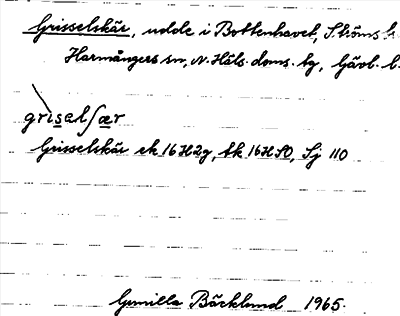 Grisselskär, udde i Bottenhavet, Ströms
Harmångers sn, N. Häls. doms. bg, Gävb. l.
grisɘlʃær
Grisselskär ek 16H2g, tk 16H SO, Sj 110
Gunilla Bäcklund 1965.